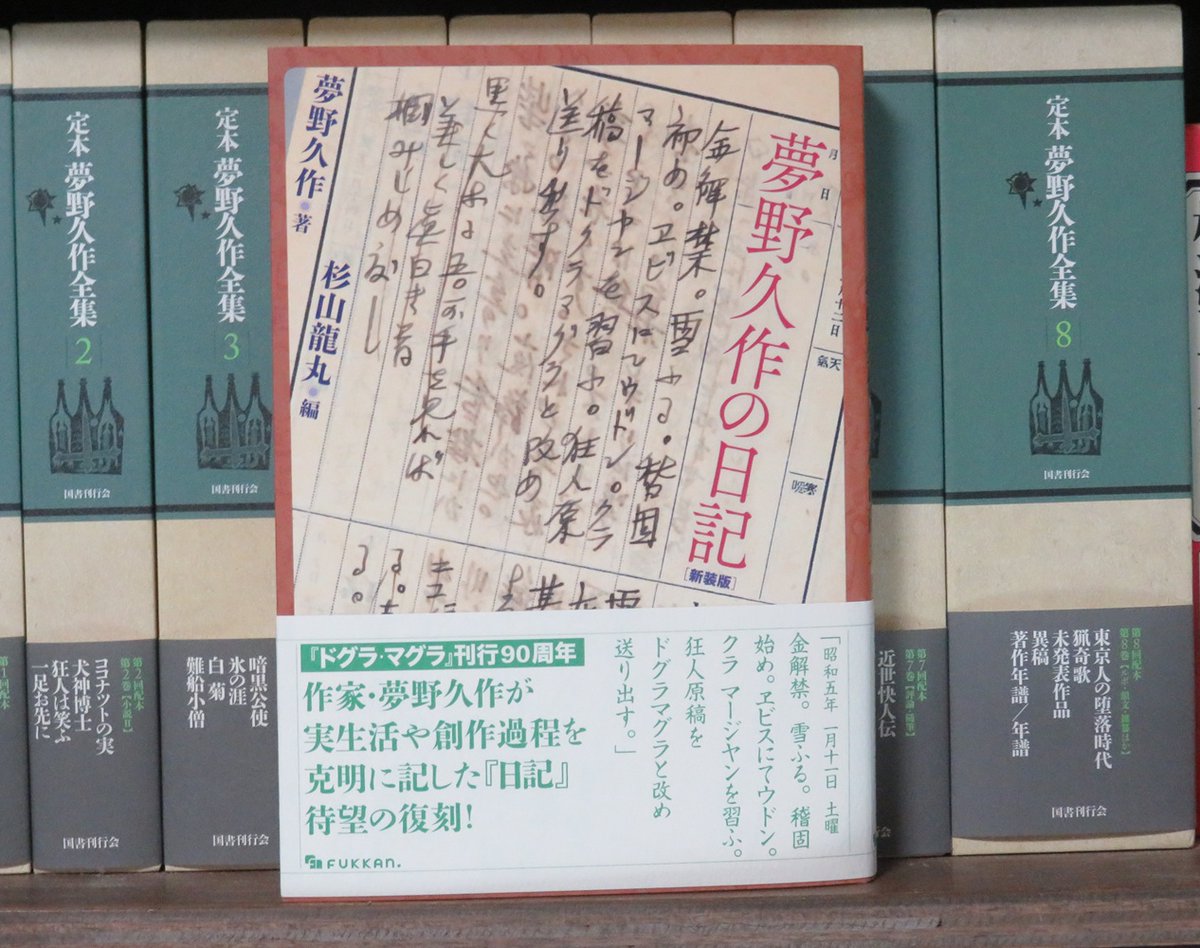 夢野久作の日記
[新装版]
夢野久作・著
杉山龍丸・編
金解禁。雪ふる。稽固
初め。ヱビスにてウドン。クラ
マージヤンを習ふ。狂人原
稿をドグラマグラと改め
送り出す。
『ドグラ・マグラ』刊行90周年
作家・夢野久作が
実生活や創作過程を
克明に記した『日記』
待望の復刻!
FUKKAN.
「昭和五年 一月十一日 土曜
金解禁。雪ふる。稽固
始め。ヱビスにてウドン。
クラ マージヤンを習ふ。
狂人原稿を
ドグラマグラと改め
送り出す。」
定本 夢野久作全集 2
国書刊行会
第2回配本
第2巻【小説II】
ココナットの実
犬神博士
狂人は笑ふ
一足お先に
国書刊行会
定本 夢野久作全集 3
国書刊行会
暗黒公使
氷の涯
白菊
難船小僧
国書刊行会
第7回配本
第7巻【評論・随筆】
近世快人伝
定本 夢野久作全集 8
国書刊行会
第8回配本
東京人の堕落時代
猟奇歌
未発表作品
異稿
著作年譜/年譜
国書刊行会
第1回配本